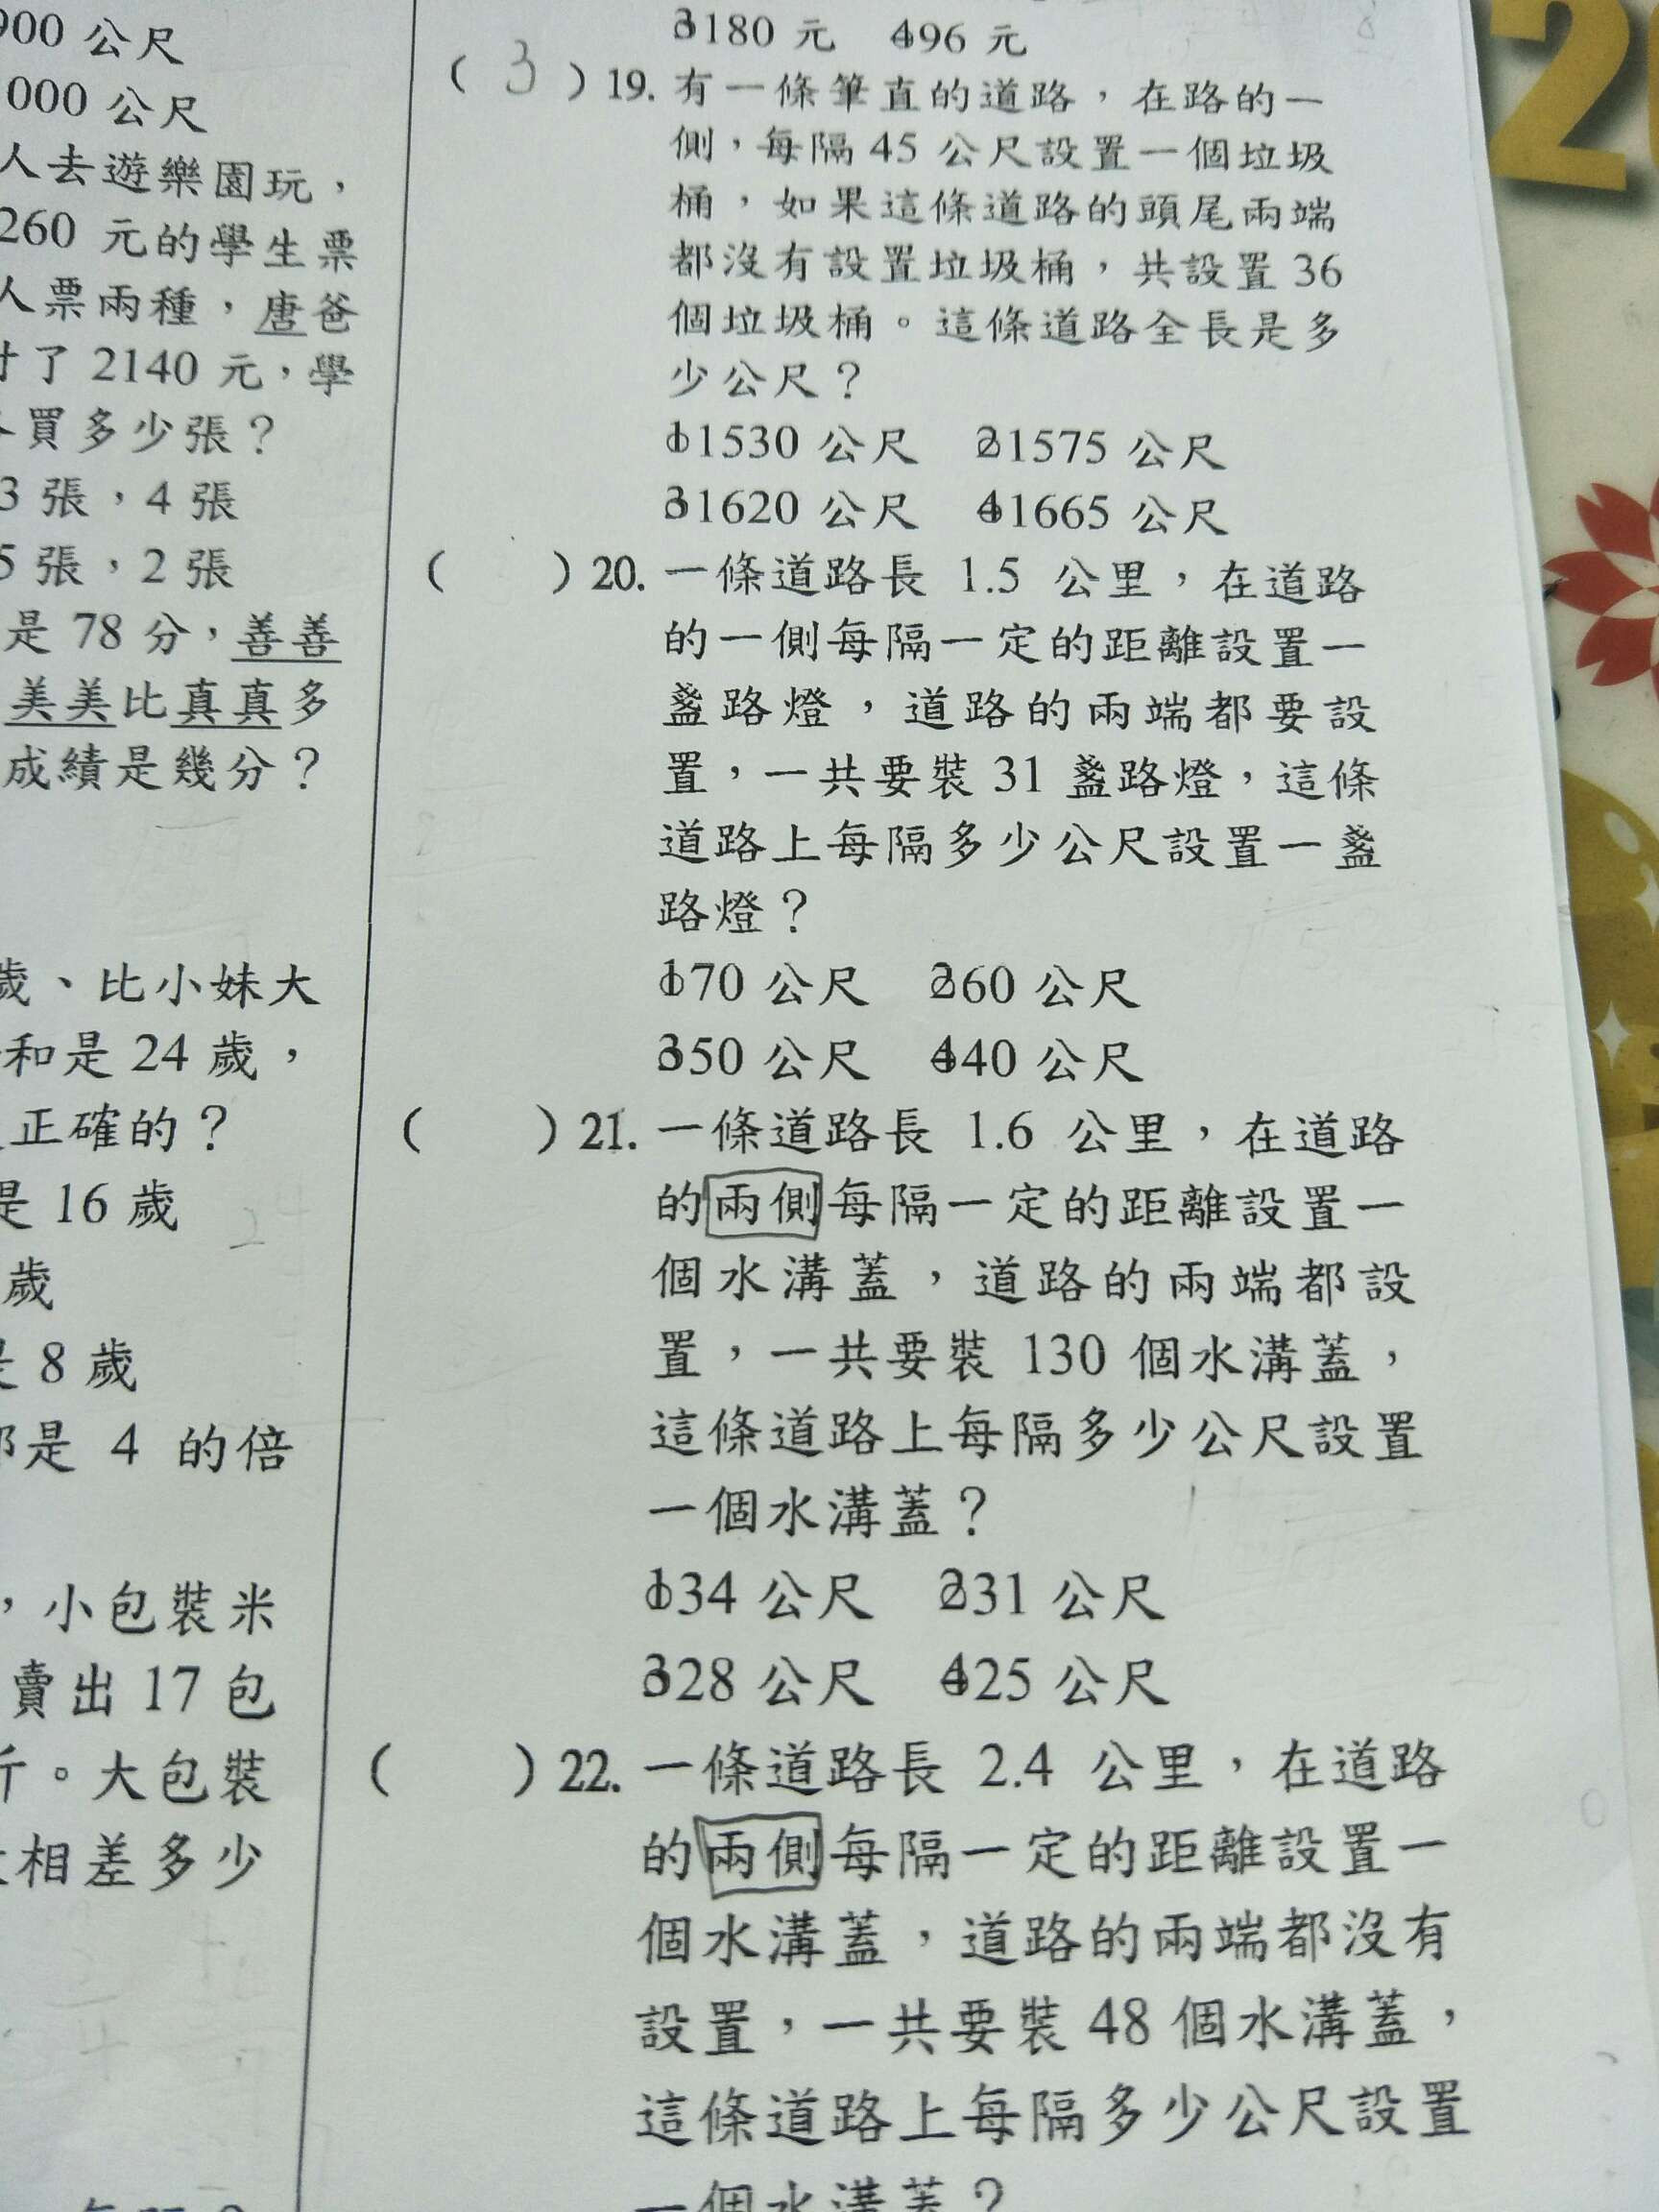 900 公尺
000 公尺
人去遊樂園玩，
260 元的學生票
人票兩種，唐爸
付了 2140 元，學
各買多少張？
3 張，4 張
5 張，2 張
是 78 分，善善
美美比真真多
成績是幾分？
歲、比小妹大
和是 24 歲，
正確的？
是 16 歲
歲
是 8 歲
都是 4 的倍
，小包裝米
賣出 17 包
斤。大包裝
相差多少
③180 元 ④96 元
( 3 ) 19. 有一條筆直的道路，在路的一
側，每隔 45 公尺設置一個垃圾
桶，如果這條道路的頭尾兩端
都沒有設置垃圾桶，共設置 36
個垃圾桶。這條道路全長是多
少公尺？
①1530 公尺 ②1575 公尺
③1620 公尺 ④1665 公尺
( ) 20. 一條道路長 1.5 公里，在道路
的一側每隔一定的距離設置一
盞路燈，道路的兩端都要設
置，一共要裝 31 盞路燈，這條
道路上每隔多少公尺設置一盞
路燈？
①70 公尺 ②60 公尺
③50 公尺 ④40 公尺
( ) 21. 一條道路長 1.6 公里，在道路
的兩側每隔一定的距離設置一
個水溝蓋，道路的兩端都設
置，一共要裝 130 個水溝蓋，
這條道路上每隔多少公尺設置
一個水溝蓋？
①34 公尺 ②31 公尺
③28 公尺 ④25 公尺
( ) 22. 一條道路長 2.4 公里，在道路
的兩側每隔一定的距離設置一
個水溝蓋，道路的兩端都沒有
設置，一共要裝 48 個水溝蓋，
這條道路上每隔多少公尺設置
一個水溝蓋？